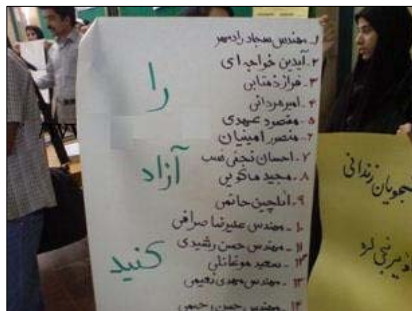 ۱- مهندس سجاد رادمهر
۲- آیدین خواجه ای
۳- فراز ذهتابی
۴- امیر مردانی
۵- مقصود عهدی
۶- منصور امینیان
۷- احسان نجفی نسب
۸- مجید ماکویی
۹- آیلچین حاتمی
۱۰- مهندس علیرضا صرافی
۱۱- مهندس حسن رشیدی
۱۲- سعید موغانلی
۱۳- مهندس مهدی نعیمی
۱۴- مهندس حسن رحیمی
را
آزاد
کنید
زندانی